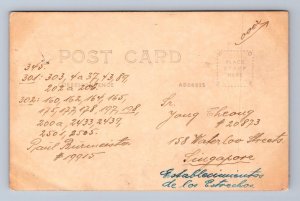 POST CARD
PLACE
STAMP
HERE
ADDRESS
301: 303, 4a 37, 43, 89,
202a 203.
302: 160, 162, 164, 165,
175, 177, 178, 197, 198,
200a, 2433, 2439,
2501, 2505.
# 19915
Yong Cheong
# 20873
158 Waterloo Street,
Singapore
Establecimientos
de los Estrechos